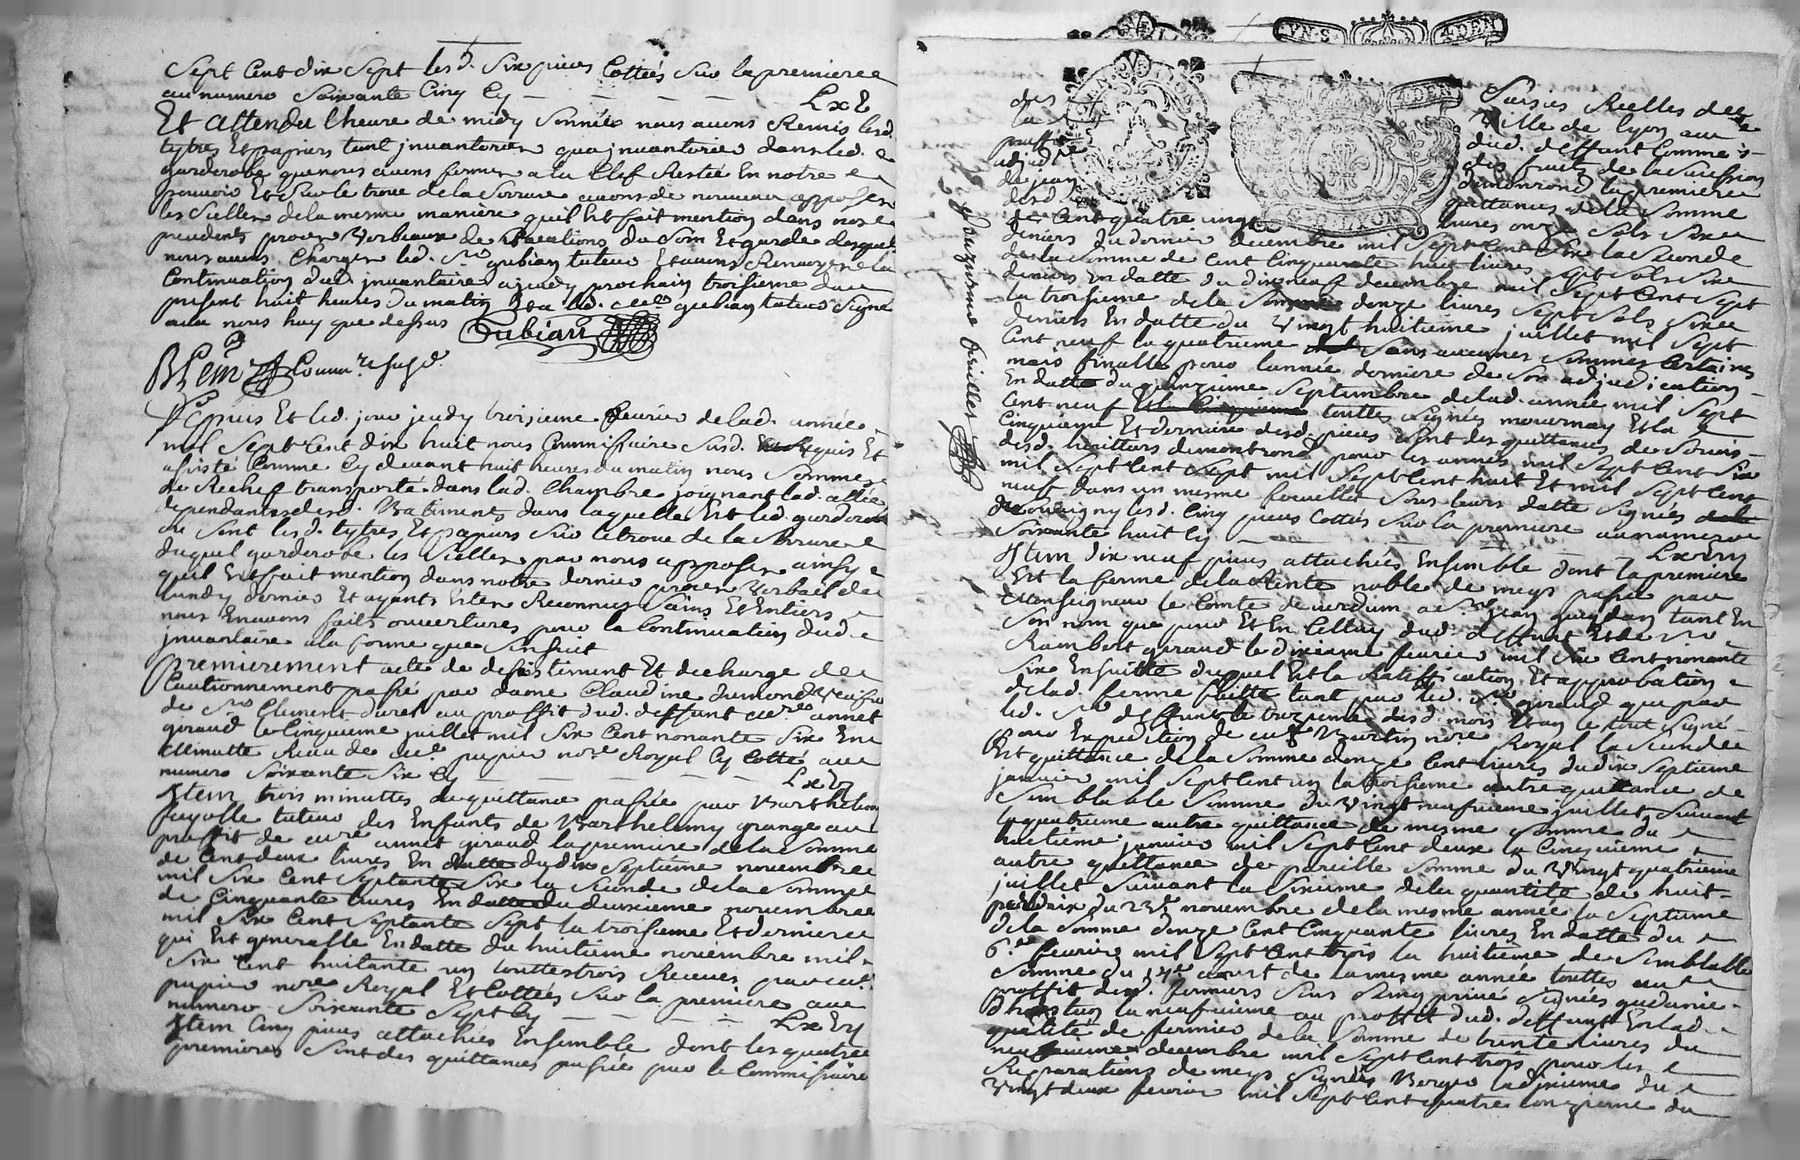 Sept Cent dix Sept lesd. Six pieces Cottées Sur la premiere
au numero Soixante Cinq Cy LxV
Et attendu l'heure de midy Sonnée nous avons Remis lesd.
tytres Et papiers tant jnuantories qua jnuantorier dans led.
garderobe que nous avons fermer a la Clef Restée En notre
pouvoir Et Sur le trou de la Serrure avons de nouveau apposer
les Scelles de la mesme maniere quil Est fait mention dans nos
precedents proces Verbeaux de Vacations du Soin Et garde desquels
nous avons Charger led. Sr gubian tuteur Et avons Renvoyer la
Continuation dud. jnuantaire a jeudy prochain troisieme du
present huit heures du matin Et a led. gubian tuteur Signé
avec nous huy que dessus Gubian
Depuis Et led. jour jeudy troisieme feurier de lad. année
mil Sept Cent dix huit nous Commissaire Susd. Requis Et
assisté Comme Cy devant huit heures du matin nous Sommes
de Rechef transporté dans lad. Chambre joignant lad. allée
dependante desd. Batiments dans laquelle Est led. garderobe
ou Sont lesd. tytres Et papiers Sur le trou de la Serrure
duquel garderobe les Scelles par nous apposer ainsy
quil Est fait mention dans notre dernier proces Verbal de
lundy dernier Et ayants Estes Reconnus Sains Et Entiers
nous En avons faits ouvertures pour la Continuation dud.
jnuantaire a la forme que Sensuit
Premierement acte de desistiment Et decharge de
Cautionnement passé par dame Claudine dumond
de Sr Clement durel au proffit dud. deffunt annet
giraud le Cinquieme juillet mil Six Cent nonante Six En
Minutte Receu de papier nore Royal Cy Cotté au
numero Soixante Six Cy Lxvj
Jtem trois minuttes de quittance passée par Barthelemy
fayolle tuteur des Enfants de Barthelemy grange au
proffit de annet giraud la premiere de la Somme
de Cent deux livres En datte du dix Septieme novembre
mil Six Cent Septante Six la Seconde de la Somme
de Cinquante livres En datte du deuxieme novembre
mil Six Cent Septante Sept la troisieme Et derniere
qui Est generalle En datte du huitieme novembre mil
Six Cent huitante un touttes trois Receues par
papier nore Royal Et Cottées Sur la premiere au
numero Soixante Sept Cy Lxvij
Jtem Cinq pieces attachées Ensemble dont les quatre
premieres Sont des quittances passée par le Commissaire
des Saisies Reelles de
la Ville de lyon au
proffit dud. deffunt Comme
adjud.re des fruits de la Succession
de jean dumonrond la premiere
desd. quittances de la Somme
de Cent quatre vingt livres onze Sols Six
deniers du dernier decembre mil Sept Cent Six la Seconde
de la Somme de Cent Cinquante huit livres Sept Sols Six
deniers En datte du dix neuf decembre mil Sept Cent Sept
la troisieme de la Somme douze livres Sept Sols Six
deniers En datte du Vingt huitieme juillet mil Sept
Cent neuf la quatrieme Sans aucunes Sommes Certaines
mais finalle pour l'année derniere de Son adjudication
En datte du quinzieme Septembre de lad. année mil Sept
Cent neuf touttes Signés mournay Et la
Cinquieme Et derniere desd. pieces Sont des quittances de Servis
desd. heritiers dumontrond pour les années mil Sept Cent Six
mil Sept Cent Sept mil Sept Cent huit Et mil Sept Cent
neuf dans un mesme feuillet Sous leurs datte Signés
lesd. Cinq pieces Cottés Sur la premiere au numero
Soixante huit Cy Lxviij
Jtem dix neuf pieces attachées Ensemble dont la premiere
Est la ferme de la Rente noble de meys passé par
Monseigneur le Comte de verdum a Sr jean tant En
Son nom que pour Et En Celluy dud. deffunt Et de Sr
Rambert giraud le dixieme feurier mil Six Cent nonante
Six Ensuitte duquel Est la Ratiffication Et approbation
de lad. ferme faitte tant par led. Sr giraud que par
led. Sr deffunt le trezieme desd. mois Et an le tout Signé
pour Expedition de Burtin nore Royal la Seconde
Est quittance de la Somme donze Cent livres du dix Septieme
janvier mil Sept Cent un la troisieme autre quittance de
Semblable Somme du Vingt neufvieme juillet Suivant
la quatrieme autre quittance de mesme Somme du
huitieme janvier mil Sept Cent deux la Cinquieme
autre quittance de pareille Somme du Vingt quatrieme
juillet Suivant la Sixieme de la quantité de huit
du 23e novembre de la mesme année la Septieme
de la Somme donze Cent Cinquante livres En datte du
6e feurier mil Sept Cent trois la huitieme de Semblable
Somme du 14e aoust de la mesme année touttes au
proffit desd. fermiers Sous Seing privé Signés
la neufvieme au proffit dud. deffunt En lad.
qualité de fermier de la Somme de trente livres du
neufvieme decembre mil Sept Cent trois pour les
Reparations de meys Signés Verger la dixieme du
Vingt deux feurier mil Sept Cent quatre lonzieme du